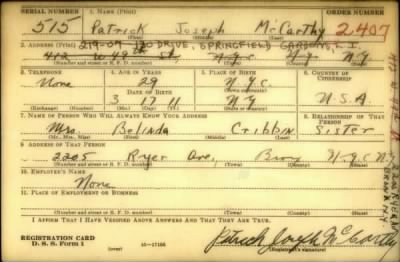 SERIAL NUMBER 1. NAME (Print) ORDER NUMBER
515 Patrick Joseph McCarthy 2,407
(First) (Middle) (Last)
2. ADDRESS (Print)
219-07 130 DRIVE, SPRINGFIELD GARDENS, L. I.
412 W 49 St N.Y.C. N.Y. N.Y.
(Number and street or R. F. D. number) (Town) (County) (State)
3. TELEPHONE 4. AGE IN YEARS 5. PLACE OF BIRTH 6. COUNTRY OF CITIZENSHIP
None 29 N.Y.C.
DATE OF BIRTH (Town or county)
3 17 11 N.Y. U.S.A.
(Exchange) (Number) (Mo.) (Day) (Yr.) (State or country)
7. NAME OF PERSON WHO WILL ALWAYS KNOW YOUR ADDRESS 8. RELATIONSHIP OF THAT PERSON
Mrs. Belinda Cribbin Sister
(Mr., Mrs., Miss) (First) (Middle) (Last)
9. ADDRESS OF THAT PERSON
2205 Ryer Ave, Bronx N.Y.C. N.Y.
(Number and street or R. F. D. number) (Town) (County) (State)
10. EMPLOYER'S NAME
None
11. PLACE OF EMPLOYMENT OR BUSINESS
(Number and street or R. F. D. number) (Town) (County) (State)
I AFFIRM THAT I HAVE VERIFIED ABOVE ANSWERS AND THAT THEY ARE TRUE.
REGISTRATION CARD
D. S. S. Form 1 (over) 16-17105 Patrick Joseph McCarthy
(Registrant's signature)